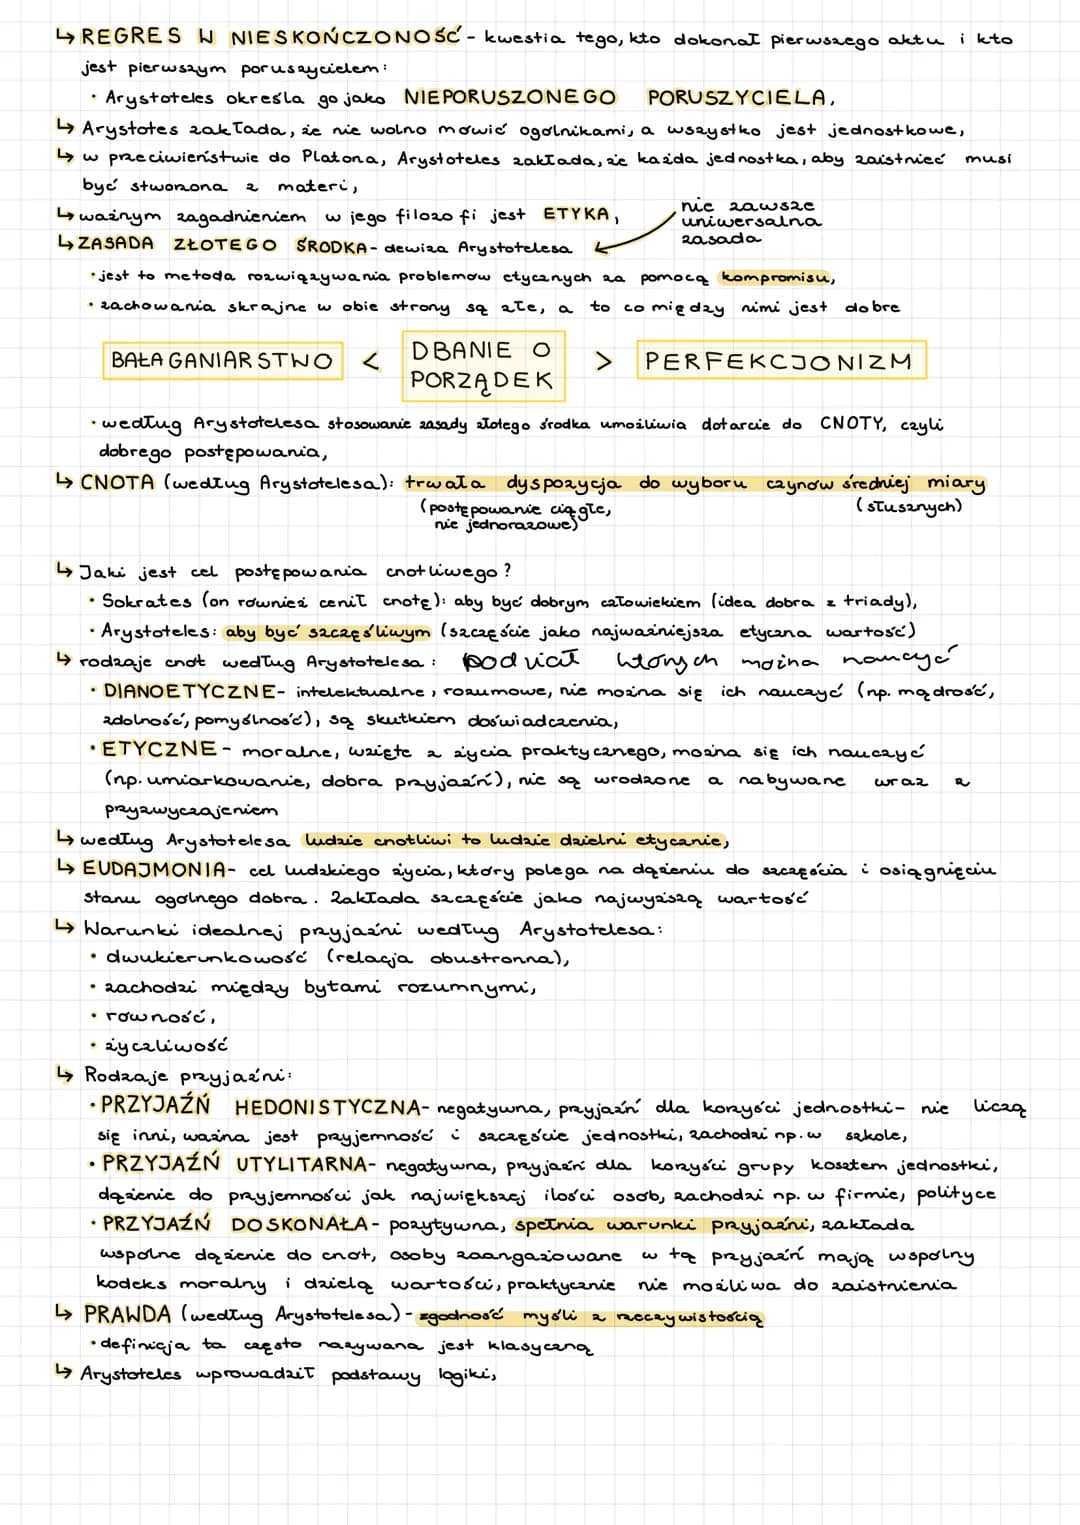 ↳ REGRES W NIESKOŃCZONOŚĆ - kwestia tego, kto dokonał pierwszego aktu i kto
jest pierwszym poruszycielem:
• Arystoteles określa go jako NIEPORUSZONEGO PORUSZYCIELA,
↳ Arystotes zakłada, że nie wolno mówić ogólnikami, a wszystko jest jednostkowe,
↳ w przeciwieństwie do Platona, Arystoteles zakłada, że każda jednostka, aby zaistnieć musi
być stworzona z materi,
↳ ważnym zagadnieniem w jego filozofi jest ETYKA,
nie zawsze
uniwersalna
zasada
↳ ZASADA ZŁOTEGO ŚRODKA - dewiza Arystotelesa
• jest to metoda rozwiązywania problemów etycznych za pomocą kompromisu,
• zachowania skrajne w obie strony są złe, a to co między nimi jest dobre
BAŁAGANIARSTWO < DBANIE O PORZĄDEK > PERFEKCJONIZM
• według Arystotelesa stosowanie zasady złotego środka umożliwia dotarcie do CNOTY, czyli
dobrego postępowania,
↳ CNOTA (według Arystotelesa): trwała dyspozycja do wyboru czynów średniej miary
(postępowanie ciągłe, (słusznych)
nie jednorazowe)
↳ Jaki jest cel postępowania cnotliwego?
• Sokrates (on również cenił cnotę): aby być dobrym człowiekiem (idea dobra z triady),
• Arystoteles: aby być szczęśliwym (szczęście jako najważniejsza etyczna wartość)
↳ rodzaje cnót według Arystotelesa: podział których można nauczyć
• DIANOETYCZNE - intelektualne, rozumowe, nie można się ich nauczyć (np. mądrość,
zdolność, pomyślność), są skutkiem doświadczenia,
• ETYCZNE - moralne, wzięte z życia praktycznego, można się ich nauczyć
(np. umiarkowanie, dobra przyjaźń), nie są wrodzone a nabywane wraz z
przyzwyczajeniem
↳ według Arystotelesa ludzie cnotliwi to ludzie dzielni etycznie,
↳ EUDAJMONIA - cel ludzkiego życia, który polega na dążeniu do szczęścia i osiągnięciu
stanu ogólnego dobra. Zakłada szczęście jako najwyższą wartość
↳ Warunki idealnej przyjaźni według Arystotelesa:
• dwukierunkowość (relacja obustronna),
• zachodzi między bytami rozumnymi,
• równość,
• życzliwość
↳ Rodzaje przyjaźni:
• PRZYJAŹŃ HEDONISTYCZNA - negatywna, przyjaźń dla korzyści jednostki - nie liczą
się inni, ważna jest przyjemność i szczęście jednostki, zachodzi np. w szkole,
• PRZYJAŹŃ UTYLITARNA - negatywna, przyjaźń dla korzyści grupy kosztem jednostki,
dążenie do przyjemności jak największej ilości osób, zachodzi np. w firmie, polityce
• PRZYJAŹŃ DOSKONAŁA - pozytywna, spełnia warunki przyjaźni, zakłada
wspólne dążenie do cnót, osoby zaangażowane w tą przyjaźń mają wspólny
kodeks moralny i dzielą wartości, praktycznie nie możliwa do zaistnienia
↳ PRAWDA (według Arystotelesa) - zgodność myśli z rzeczywistością
• definicja ta często nazywana jest klasyczną
↳ Arystoteles wprowadził podstawy logiki,